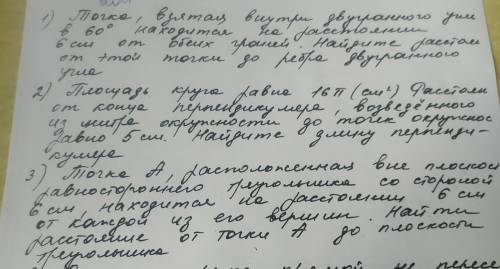 1) Точка, взятая внутри двугранного угла
в 60° находится на расстоянии
6 см от обеих граней. Найдите расстоян
от этой точки до ребра двугранного
угла
2) Площадь круга равна 16π (см²) Расстоян
от конца перпендикуляра, возведённого
из центра окружности до точек окружнос
равно 5 см. Найдите длину перпенди-
куляра
3) Точка А, расположенная вне плоскос
равностороннего треугольника со стороной
6 см, находится на расстоянии 6 см
от каждой из его вершин. Найти
расстояние от точки А до плоскости
треугольника
не пересе